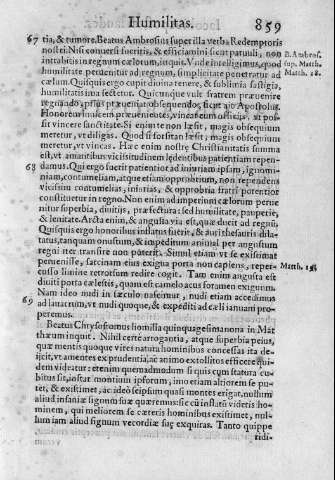 Humilitas. 859
67 tia, & tumore. Beatus Ambrosius super illa verba Redemptoris
nostri. Nisi conuersi fueritis, & efficiamini sicut paruuli, non B. Ambros.
intrabitis in regnum cælorum, inquit. Vnde intelligimus, quod sup. Matth.
humilitate peruenitur ad regnum, simplicitate penetratur ad Matth. 18.
cælum. Quisquis ergo cupit diuina tenere, & sublimia fastigia,
humilitatis ima sectetur. Quicumque vult fratrem præuenire
regnando, prius præueniat obsequendo, sicut ait Apostolus.
Honore inuicem præuenientes, vincat eum officijs, vt possit
vincere sanctitate. Si enim te non læsit, magis obsequium
meretur, vt diligas. Quod si forsitan læsit, magis obsequium
meretur, vt vincas. Hæc enim nostræ Christianitatis summa
est, vt amantibus vicissitudinem lędentibus patientiam repen-
68 damus. Qui ergo fuerit patientior ad iniuriam ipsam, ignomi-
niam, contumeliam, atque etiam opprobrium, non rependens
vicissim contumelias, iniurias, & opprobria fratri potentior
constituetur in regno. Non enim ad imperium cælorum perue
nitur superbia, diuitijs, præfectura: sed humilitate, pauperie,
& lenitate. Arcta enim, & angusta via est, quæ ducit ad regnũ.
Quisquis ergo honoribus inflatus fuerit, & auri thesauris dila-
tatus, tanquam onustum, & impeditum animal per angustum
regni iter transire non poterit. Simul etiam vt se existimat
peruenisse, sarcinam eius exigua porta non capiens, reper-
cusso limine retrorsum redire cogit. Tam enim angusta est
diuiti porta cælestis, quam est camelo acus foramen exiguum.
Nam ideo nudi in sæculo nascimur, nudi etiam accedimus
69 ad lauacrum, vt nudi quoque, & expediti ad cæli ianuam pro-
peremus.
Beatus Chrysostomus homilia quinquagesimanona in Mat
thæum inquit. Nihil certe arrogantia, atque superbia peius,
quæ mentis quoque vires natura hominibus concessas ita de-
ijcit, vt amentes ex prudentia, ac animo extollitos efficere qui-
dem videatur: etenim quemadmodum si quis cum statura cu-
bitus sit, iustat montium ipsorum, imo etiam altiorem se pu-
tet, & existimet, ac ideo seipsum quasi montes erigat, nullum
aliud insaniæ signum suæ quæremus: sic cũ inflatũ videris ho-
minem, qui meliorem se cæteris hominibus existimet, nul-
lum iam aliud signum vecordiæ suę exquiras. Tanto quippe
ridi-